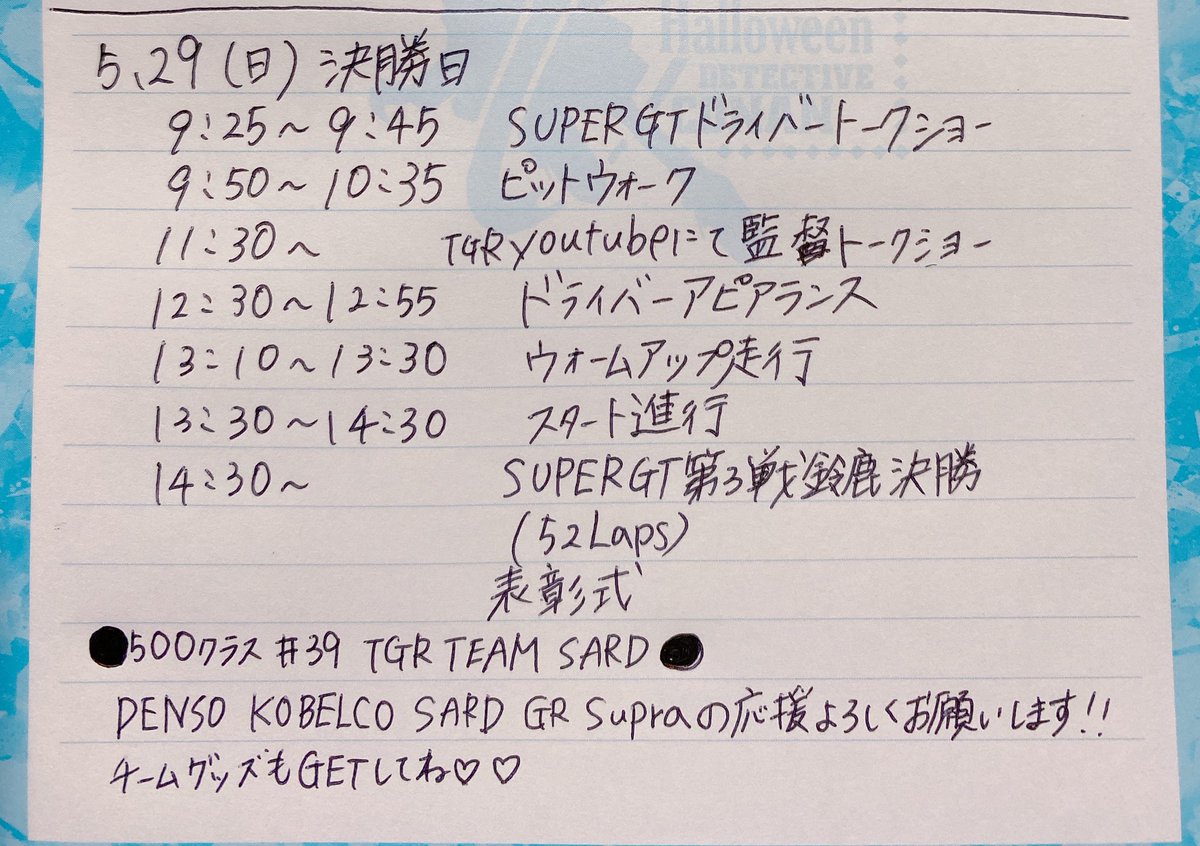 Halloween
DETECTIVE
5.29(日) 決勝日
9:25〜9:45 SUPER GTドライバートークショー
9:50〜10:35 ピットウォーク
11:30〜 TGR youtubeにて監督トークショー
12:30〜12:55 ドライバーアピアランス
13:10〜13:30 ウォームアップ走行
13:30〜14:30 スタート進行
14:30〜 SUPER GT 第3戦 鈴鹿 決勝
(52Laps)
表彰式
●500クラス #39 TGR TEAM SARD●
DENSO KOBELCO SARD GR Supraの応援よろしくお願いします!!
チームグッズもGETしてね♡♡